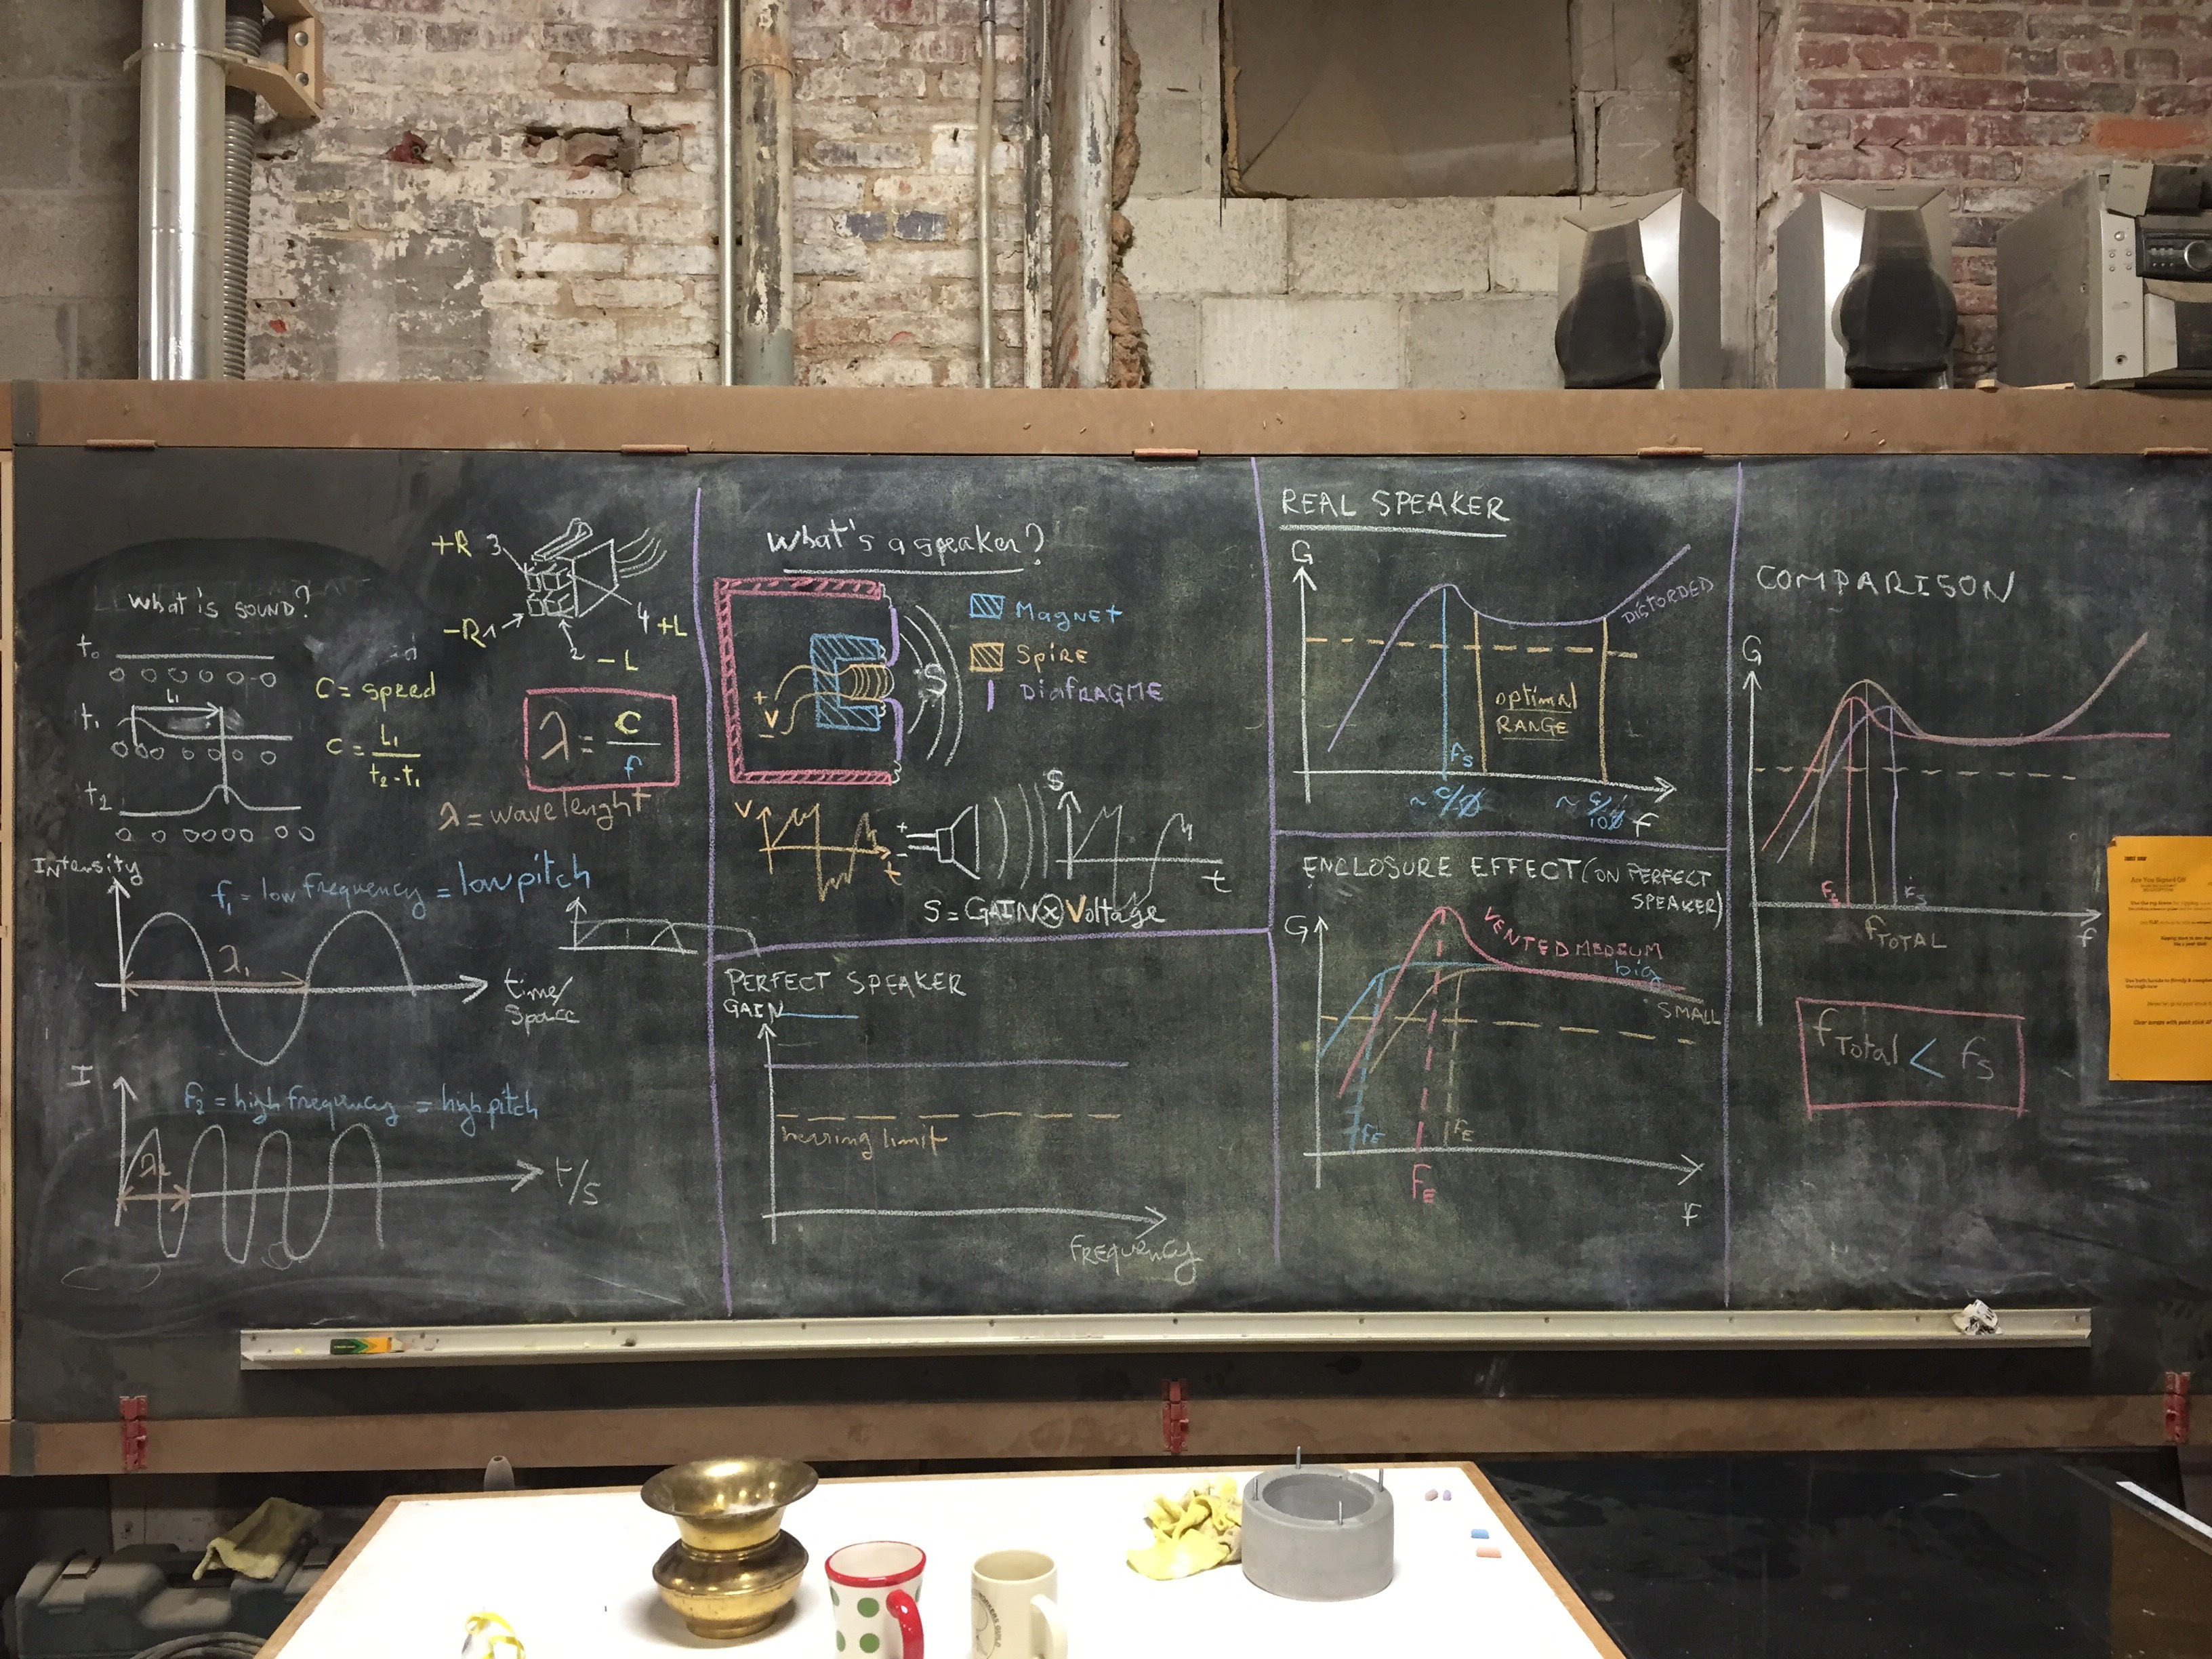 What is SOUND?
+R 3
-R 1
2 -L
4 +L
t₀
L₁
t₁
t₂
C = speed
C = L₁/t₂-t₁
λ = C/f
λ = wavelenght
Intensity
f₁ = low frequency = low pitch
λ₁
time/
Space
I
f₂ = high frequency = high pitch
λ₂
t/s
What's a speaker?
Magnet
Spire
DiafRAGME
+
V
-
S
V
t
+
-
S
t
S = GAIN ⊗ Voltage
PERFECT SPEAKER
GAIN
hearing limit
FREQUENCY
REAL SPEAKER
G
DISTORDED
optimal
RANGE
fs
f
ENCLOSURE EFFECT (ON PERFECT
SPEAKER)
G
VENTED MEDIUM
big
SMALL
fE
FE
fE
f
COMPARISON
G
FE
fs
fTOTAL
f
fTotal < fs
Are You Signed Off